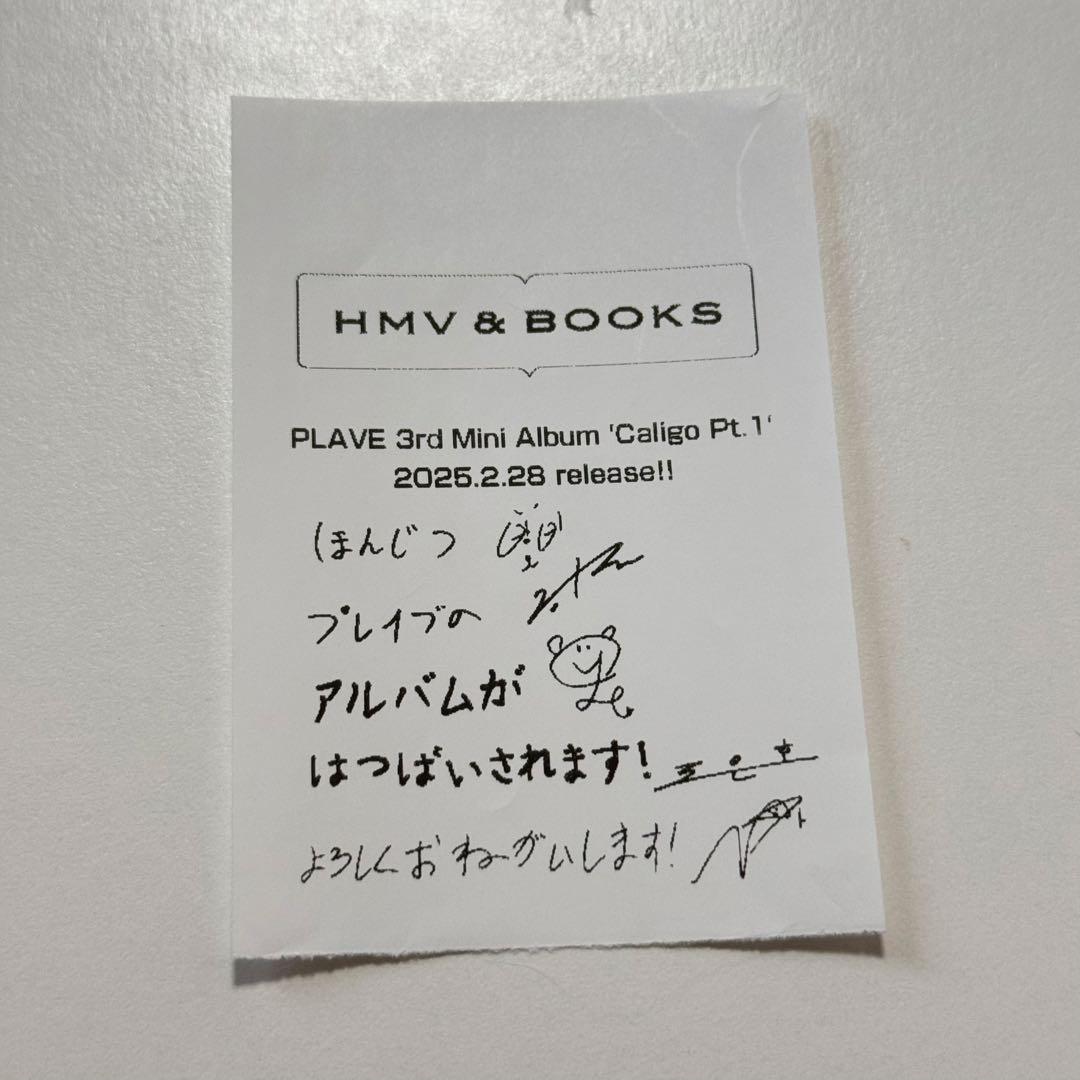 HMV & BOOKS
PLAVE 3rd Mini Album 'Caligo Pt.1'
2025.2.28 release!!
ほんじつ
プレイブの
アルバムが
はつばいされます!
よろしくおねがいします!